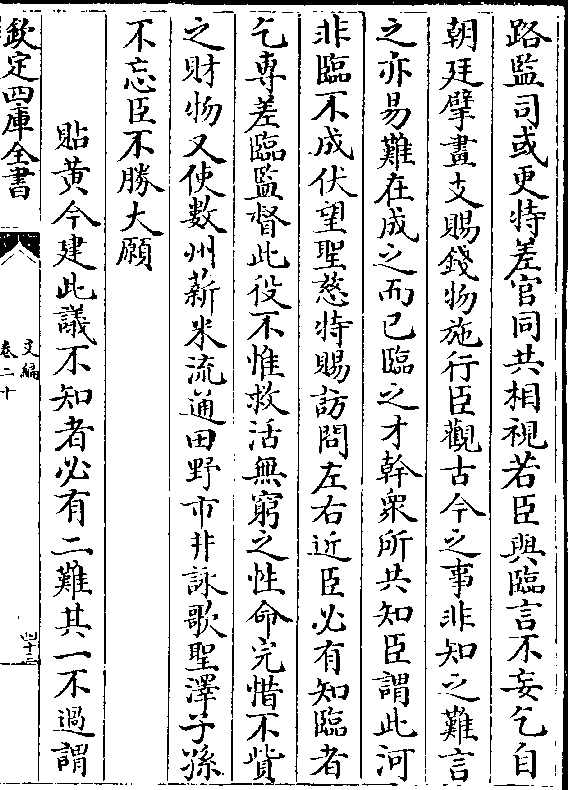 路監司或更特差官同共相視若臣與臨言不妄乞自
朝廷擘畫支賜錢物施行臣觀古今之事非知之難言
之亦易難在成之而已臨之才幹衆所共知臣謂此河
非臨不成伏望聖慈特賜訪問左右近臣必有知臨者
乞専差臨監督此役不惟救活無窮之性命完惜不貲
之財物又使數州薪米流通田野市井詠歌聖澤子孫
不忘臣不勝大願
貼黄今建此議不知者必有二難其一不過謂
欽定四庫全書
文編
卷二十
四十三